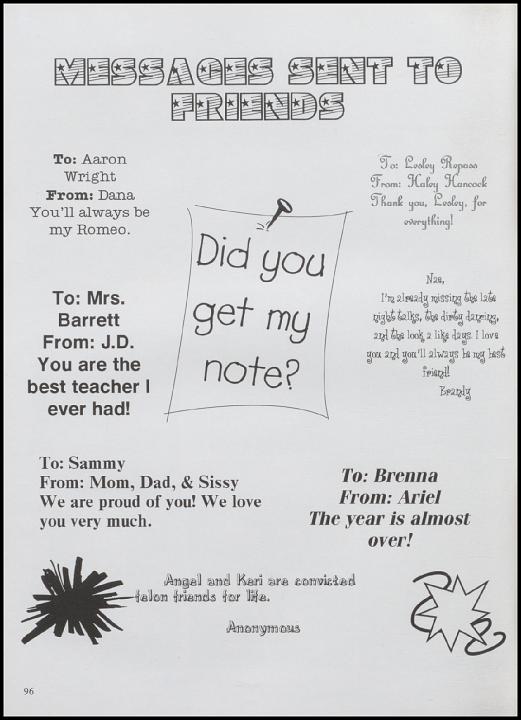 MESSAGES SENT TO
FRIENDS
To: Aaron
Wright
From: Dana
You'll always be
my Romeo.
To: Lesley Repass
From: Haley Hancock
Thank you, Lesley, for
everything!
Did you
get my
note?
To: Mrs.
Barrett
From: J.D.
You are the
best teacher I
ever had!
Nae,
I'm already missing the late
night talks, the dirty dancing,
and the look a like days. I love
you and you'll always be my best
friend!
Brandy
To: Sammy
From: Mom, Dad, & Sissy
We are proud of you! We love
you very much.
To: Brenna
From: Ariel
The year is almost
over!
Angel and Keri are convicted
felon friends for life.
Anonymous
96